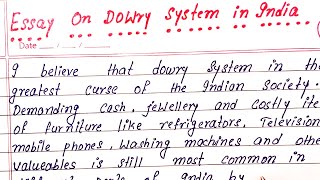 Essay On Dowry System in India
Date
I believe that dowry system in the
greatest curse of the Indian Society.
Demanding cash, jewellery and costly ite
of furniture like refrigerators, Television
mobile phones, Washing machines and othe
valueables is still most common in
of India by